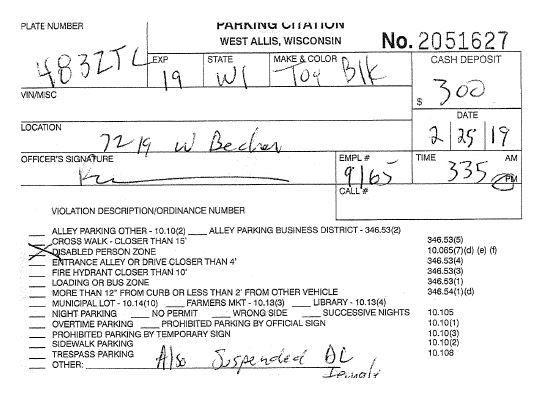 PLATE NUMBER PARKING CITATION
WEST ALLIS, WISCONSIN No. 2051627
483ZTL EXP 19 STATE WI MAKE & COLOR Toy Blk CASH DEPOSIT $ 300
VIN/MISC
DATE 2 25 19
LOCATION 7219 W Becher
OFFICER'S SIGNATURE EMPL # 9165 TIME 335 AM PM
CALL #
VIOLATION DESCRIPTION/ORDINANCE NUMBER
ALLEY PARKING OTHER - 10.10(2) ALLEY PARKING BUSINESS DISTRICT - 346.53(2)
CROSS WALK - CLOSER THAN 15' 346.53(5)
DISABLED PERSON ZONE 10.065(7)(d) (e) (f)
ENTRANCE ALLEY OR DRIVE CLOSER THAN 4' 346.53(4)
FIRE HYDRANT CLOSER THAN 10' 346.53(3)
LOADING OR BUS ZONE 346.53(1)
MORE THAN 12" FROM CURB OR LESS THAN 2' FROM OTHER VEHICLE 346.54(1)(d)
MUNICIPAL LOT - 10.14(10) FARMERS MKT - 10.13(3) LIBRARY - 10.13(4)
NIGHT PARKING NO PERMIT WRONG SIDE SUCCESSIVE NIGHTS 10.105
OVERTIME PARKING PROHIBITED PARKING BY OFFICIAL SIGN 10.10(1)
PROHIBITED PARKING BY TEMPORARY SIGN 10.10(3)
SIDEWALK PARKING 10.10(2)
TRESPASS PARKING 10.108
OTHER: Also Suspended DL